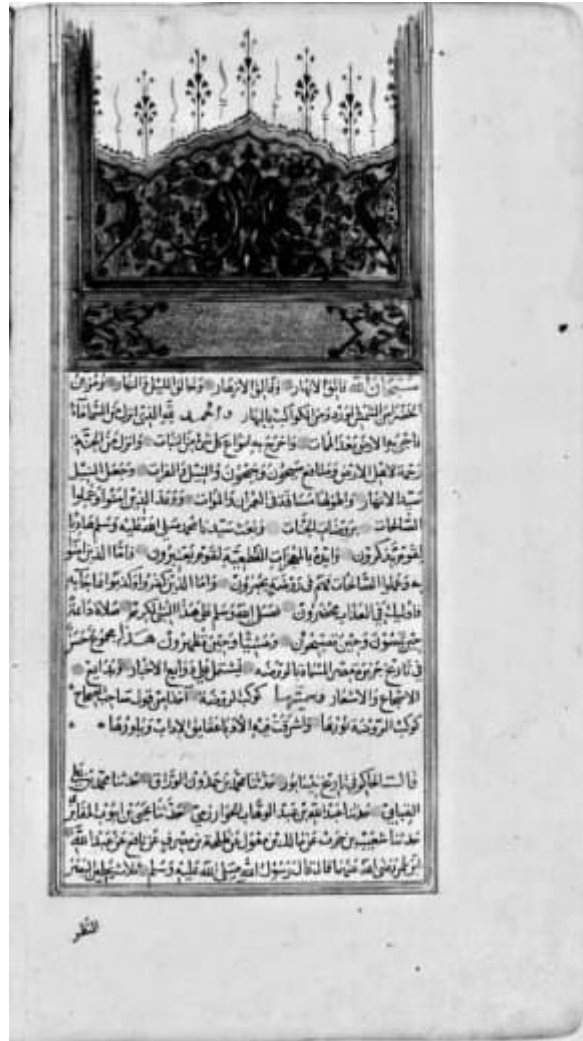 سبحان الله فالق الانهار وفالق الازهار وخالق الليل والنهار
بالنهار والحمد لله الذي انزل من السماء ماء
فاحيى به الارض بعد الممات واخرج به انواع كل شئ من النبات وانزل من الجنة
رحمة لاهل الارض سيحون وجيحون والنيل والفرات وجعل النيل
سيد الانهار واطولها مسافة في العمران والموات ووعد الذين امنوا وعملوا
الصالحات بروضات الجنات وبعث سيدنا محمد صلى الله عليه وسلم هاديا
لقوم يذكرون وايده بالمعجزات القطعية لقوم يعتبرون فاما الذين امنوا
به وعملوا الصالحات فهم في روضة يحبرون واما الذين كفروا وكذبوا بما جاء به
فاولئك في العذاب محضرون فصل الله وسلم على هذا النبي الكريم صلاة دائمة
حين تمسون وحين تصبحون وعشيا وحين تظهرون هذا مجموع حسن
في تاريخ جزيرة مصر المسماة بالروضة يشتمل على بدايع الاخبار وبدايع
الاسجاع والاشعار وسميتها كوكب الروضة آخذا من قول صاحب الصحاح
كوكب الروضة نورها
قال الحاكم في تاريخ نيسابور حدثنا محمد بن حمدون الوراق حدثنا محمد بن
حدثنا عبد الله بن عبد الوهاب الخوارزمي حدثنا يحيى بن ايوب المقابري
حدثنا شعيب بن حرب عن مالك بن مغول عن طلحة بن مصرف عن نافع عن عبد الله
ابن عمر رضى الله عنهما قال قال رسول الله صلى الله عليه وسلم ثلاث يجلين البصر
النظر